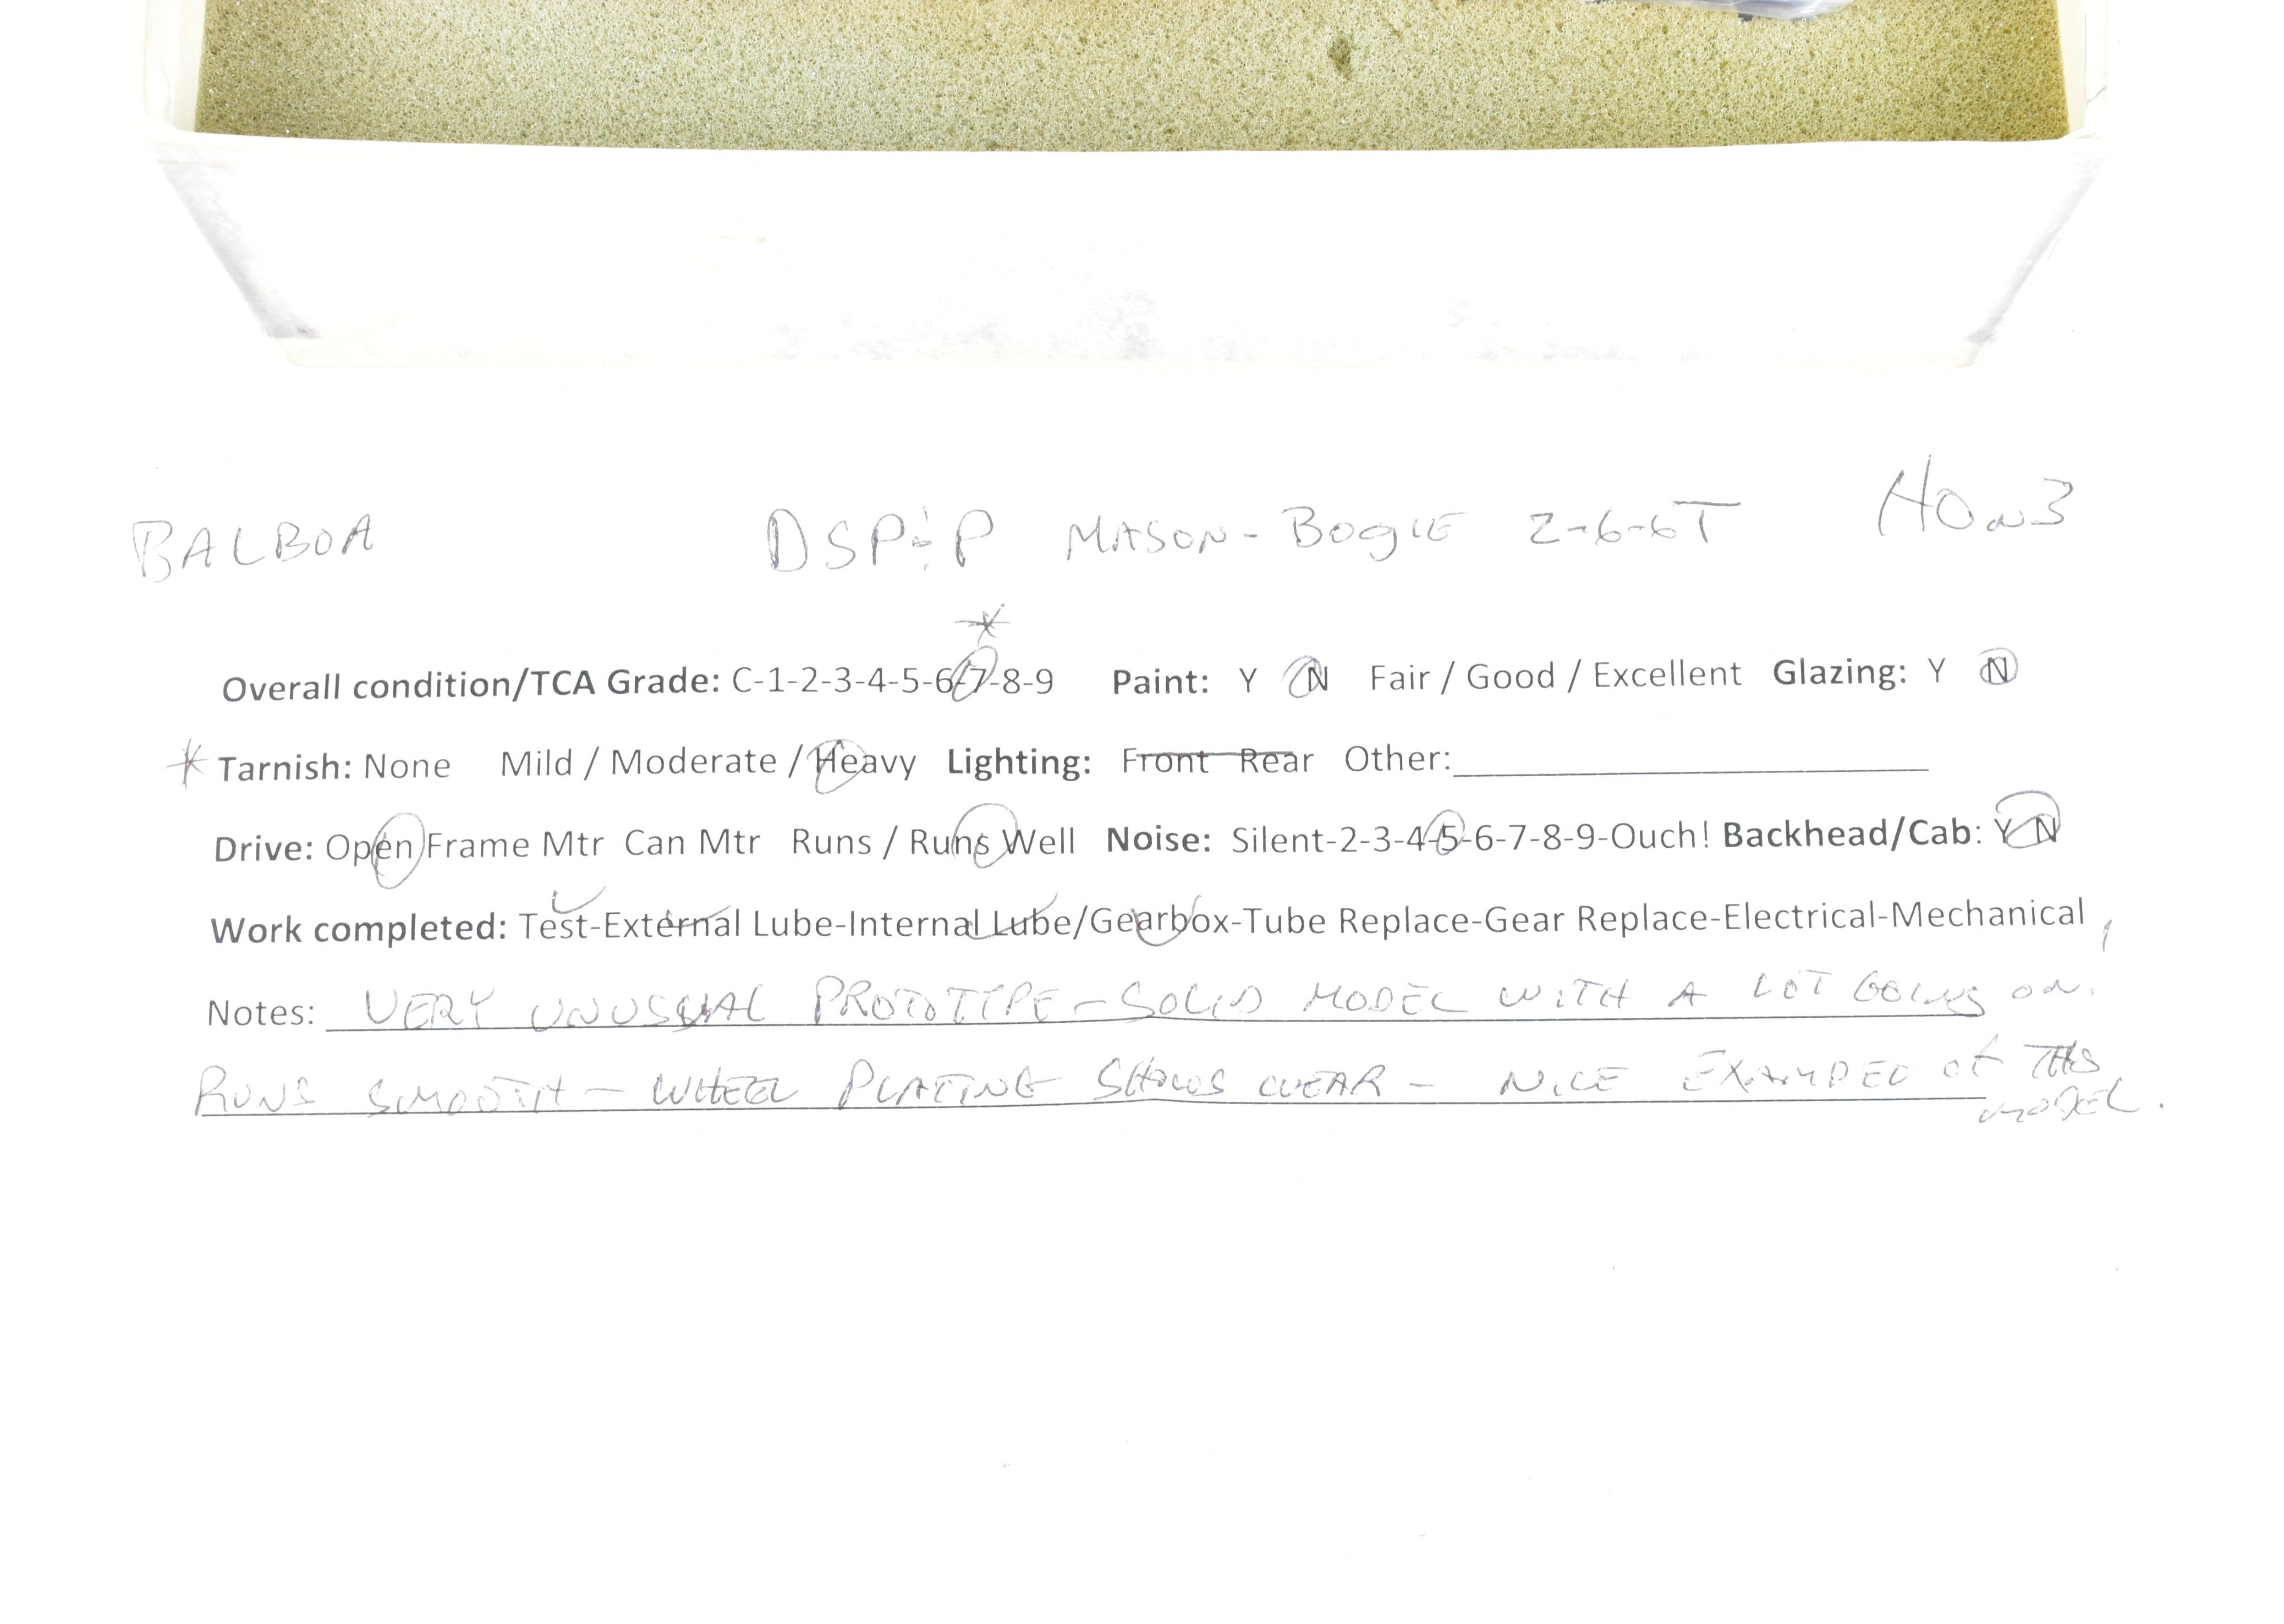 BALBOA DSP&P MASON-BOGIE 2-6-6T HOn3
*
Overall condition/TCA Grade: C-1-2-3-4-5-6-7-8-9 Paint: Y N Fair / Good / Excellent Glazing: Y N
* Tarnish: None Mild / Moderate / Heavy Lighting: Front Rear Other:
Drive: Open Frame Mtr Can Mtr Runs / Runs Well Noise: Silent-2-3-4-5-6-7-8-9-Ouch! Backhead/Cab: Y N
Work completed: Test-External Lube-Internal Lube/Gearbox-Tube Replace-Gear Replace-Electrical-Mechanical
Notes: VERY UNUSUAL PROTOTYPE - SOLID MODEL WITH A LOT GOING ON.
RUNS SMOOTH - WHEEL PLATING SHOWS WEAR - NICE EXAMPLED OF THIS
MODEL.